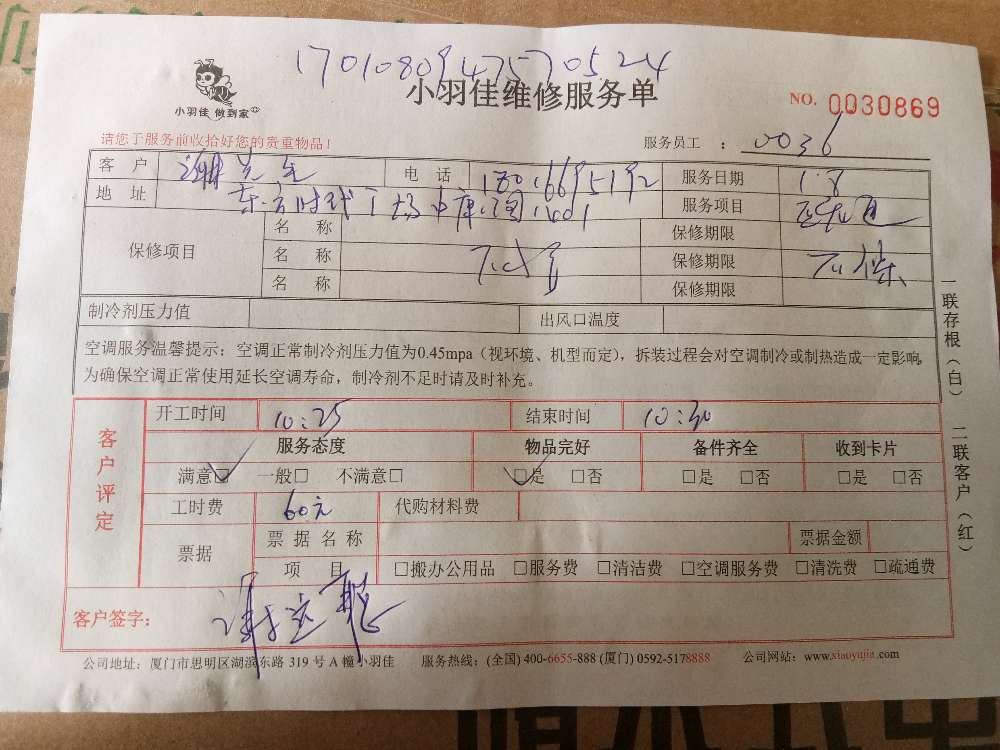 1701080947570524
小羽佳 做到家
小羽佳维修服务单
NO. 0030869
请您于服务前收拾好您的贵重物品！
服务员工 ： 0036
客 户 谢先生 电 话 服务日期 1.8
地 址 东方时代广场 服务项目
保修项目
名 称 保修期限
名 称 保修期限
名 称 保修期限
制冷剂压力值 出风口温度
空调服务温馨提示：空调正常制冷剂压力值为0.45mpa（视环境、机型而定），拆装过程会对空调制冷或制热造成一定影响，
为确保空调正常使用延长空调寿命，制冷剂不足时请及时补充。
客户评定
开工时间 10:25 结束时间 10:30
服务态度 物品完好 备件齐全 收到卡片
满意☑ 一般□ 不满意□ ☑是 □否 □是 □否 □是 □否
工时费 60元 代购材料费
票据 票据名称 票据金额
项 目 □搬办公用品 □服务费 □清洁费 □空调服务费 □清洗费 □疏通费
客户签字：
公司地址：厦门市思明区湖滨东路 319 号 A 幢小羽佳 服务热线：(全国) 400-6655-888 (厦门) 0592-5178888 公司网站：www.xiaoyujia.com
一联存根（白） 二联客户（红）